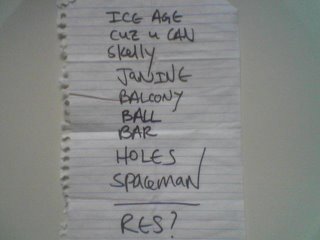 ICE AGE
CUZ U CAN
Skelly
JANINE
BALCONY
BALL
BAR
HOLES
SPACEMAN
RES?